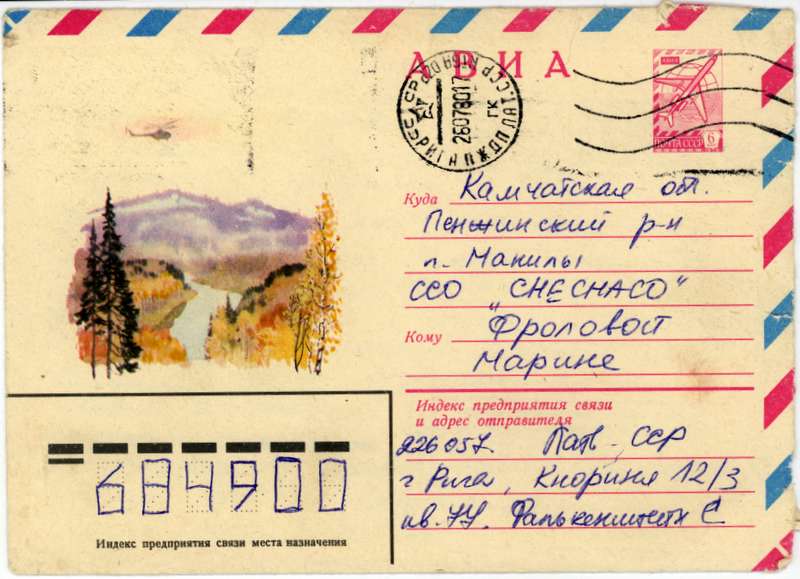 АВИА
АВИА
ПОЧТА СССР 6
26078017
Куда Камчатская от.
Пенжинский р-н
п. Манилы
ССО „СНЕСНАСО"
Кому Фроловой
Марине
Индекс предприятия связи
и адрес отправителя
226057. Латв. ССР
г Рига, Кнориня 12/3
кв. 44. Фалькенштейн С
684900
Индекс предприятия связи места назначения